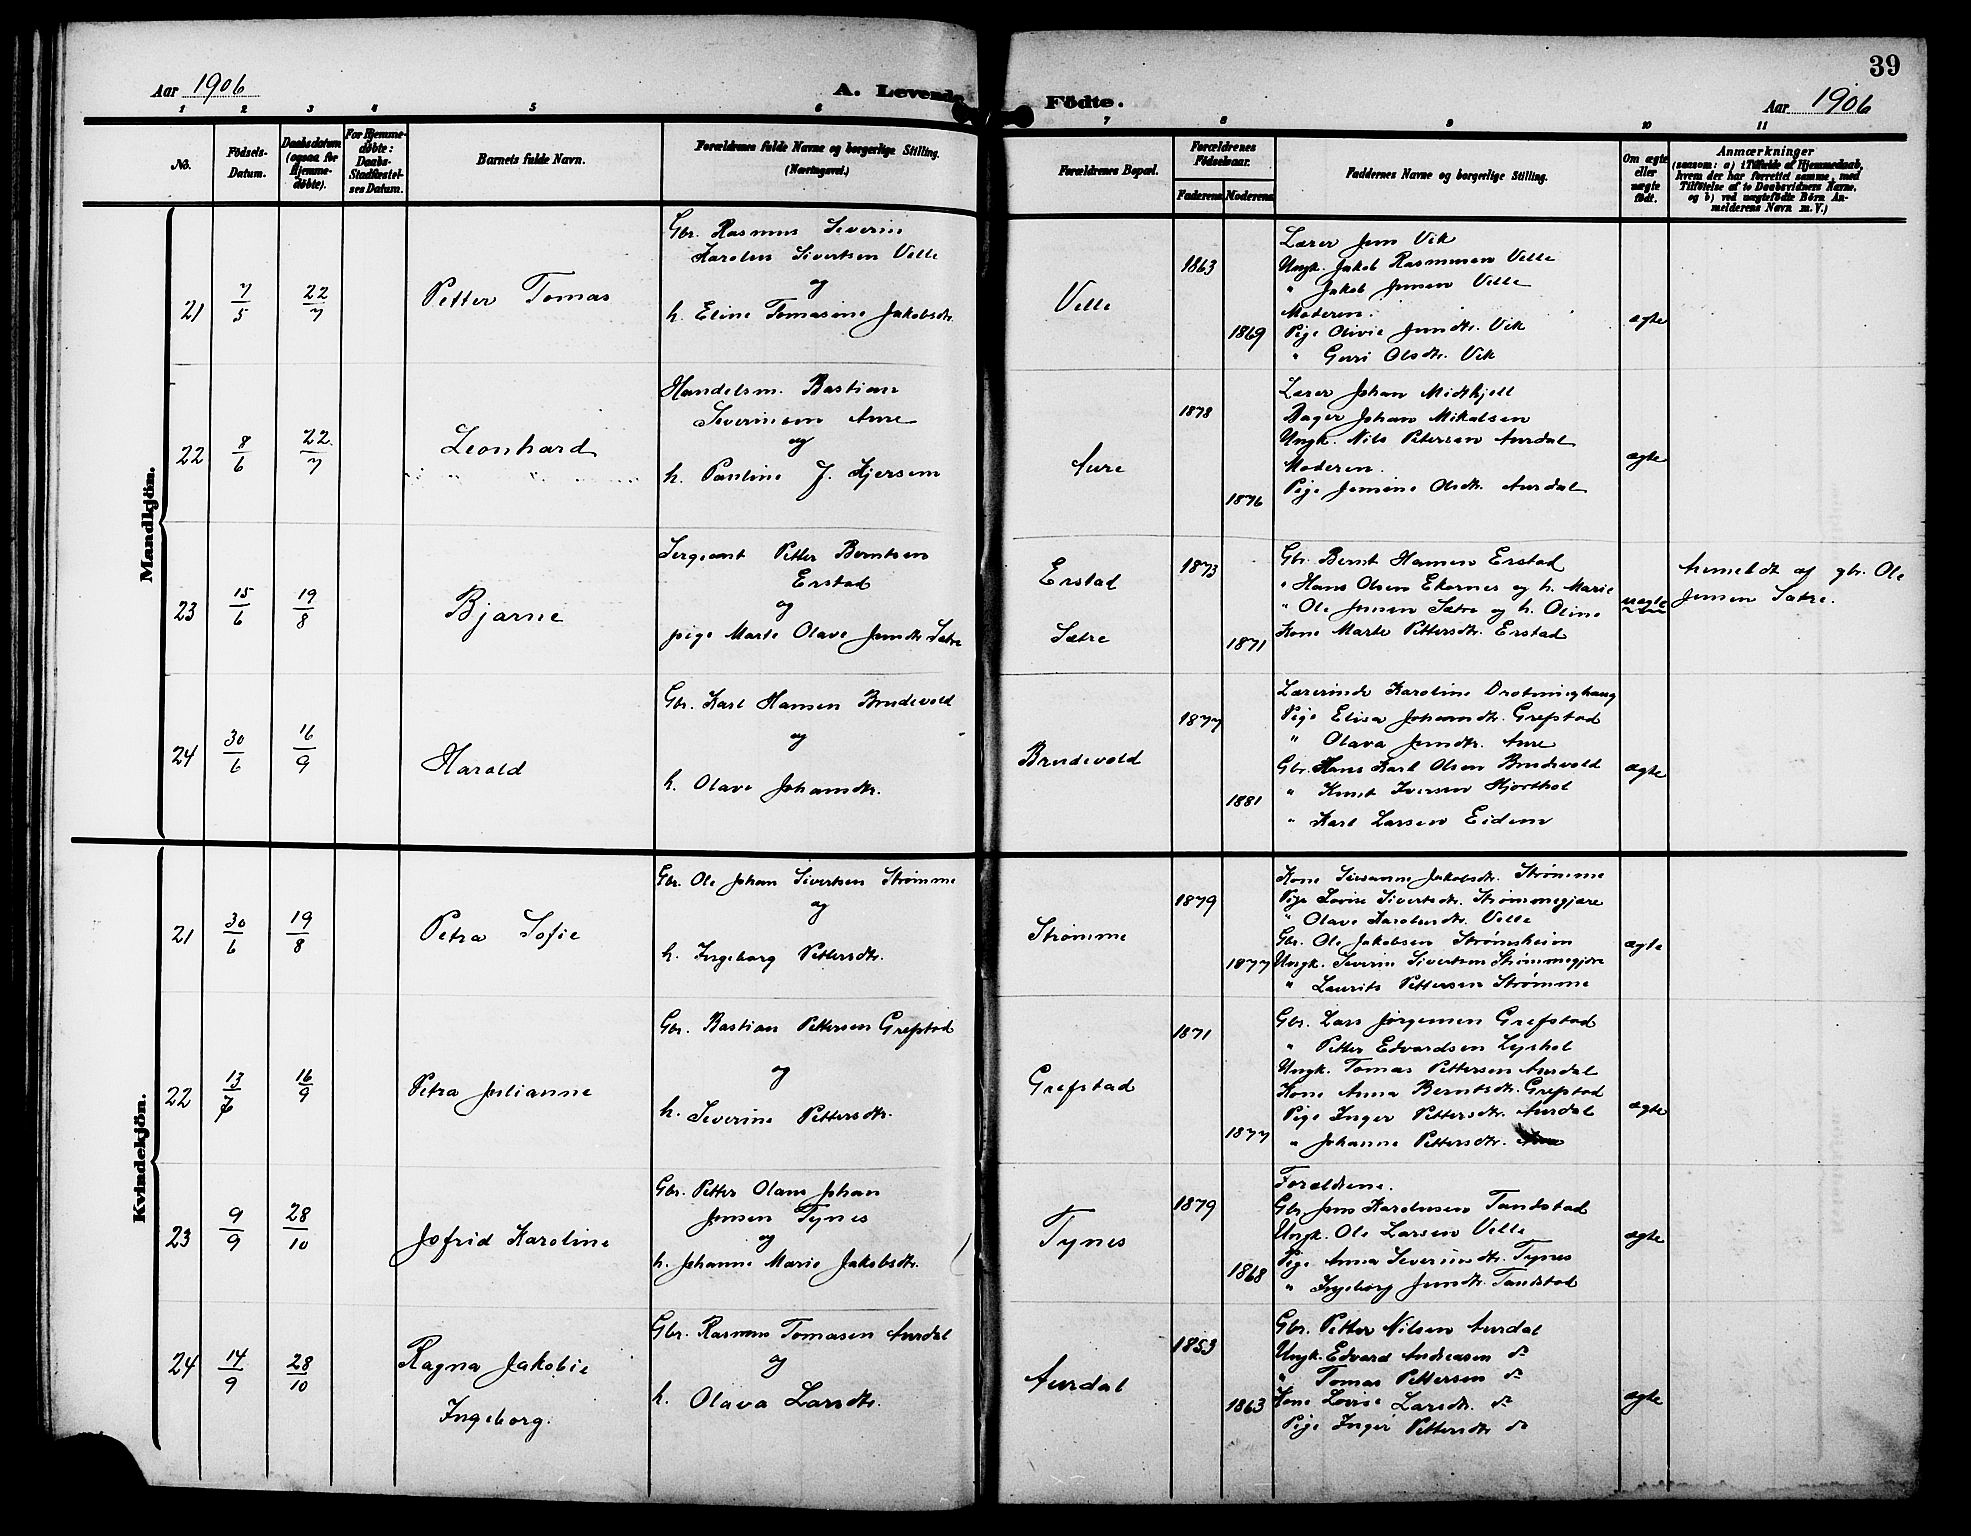 39
Aar 1906
A. Levende Födte.
Aar 1906
1 2 3 4 5 6 7 8 9 10 11
No.
Födsels-Datum.
Daabsdatum (ogsaa for Hjemme-døbte).
For Hjemme-døbte: Daabs-Stadfæstel-ses Datum.
Barnets fulde Navn.
Forældrenes fulde Navne og borgerlige Stilling.
(Næringsvei.)
Forældrenes Bopæl.
Forældrenes Födselsaar.
Faderens Moderens
Faddernes Navne og borgerlige Stilling.
Om ægte eller uægte födt.
Anmærkninger
(saasom: a) i Tilfælde af Hjemmedaab,
hvem der har forrettet samme, med
Tilföielse af to Daabsvidners Navne,
og b) ved uægtefödte Börn An-
melderens Navn m. V.)
Mandkjön.
21 7/5 22/7 Petter Tomas
Gbr. Rasmus Severin
Karolus Sivertsen Velle
og
h. Eline Tomasine Jakobsdtr.
Velle
1863
1869
Lærer Jens Vik
Ungk. Jakob Rasmussen Velle
" Jakob Jensen Velle
Moderen.
Pige Olivie Jensdtr. Vik
" Guri Olsdtr. Vik
ægte
22 8/6 22/7 Leonhard
Handelsm. Bastian
Severinsen Aure
og
h. Pauline J. Hjersem
Aure
1878
1876
Lærer Johan Midtkjell
Bager Johan Mikalsen
Ungk. Nils Petersen Aurdal
Moderen.
Pige Jensine Olsdtr. Aurdal
ægte
23 15/6 19/8 Bjarne
Sergeant Petter Berntsen
Erstad
og
pige Marte Olave Jensdtr. Sætre
Erstad
Sætre
1873
1871
Gbr. Bernt Hansen Erstad
" Hans Olsen Ekornes og h. Marie
" Ole Jensen Sætre og h. Oline
Kone Marte Pettersdtr. Erstad
uægte
Anmeldt af gbr. Ole
Jensen Sætre.
24 30/6 16/9 Harald
Gbr. Karl Hansen Brudevold
og
h. Olave Johansdtr.
Brudevold
1877
1881
Lærerinde Karoline Drotninghaug
Pige Elisa Johansdtr. Grefstad
" Olava Jensdtr. Aure
Gbr. Hans Karl Olsen Brudevold
" Knut Iversen Hjorthol
" Karl Larsen Eidem
ægte
Kvindekjön.
21 30/6 19/8 Petra Sofie
Gbr. Ole Johan Sivertsen Strømme
og
h. Ingeborg Pettersdtr.
Strømme
1879
1877
Kone Susanne Jakobsdtr. Strømme
Pige Lovise Sivertsdtr. Strømmegjære
" Olave Karolusdtr. Velle
Gbr. Ole Jakobsen Strømsheim
Ungk. Severin Sivertsen Strømmegjære
" Laurits Pettersen Strømme
ægte
22 13/7 16/9 Petra Julianne
Gbr. Bastian Pettersen Grefstad
og
h. Severine Pettersdtr.
Grefstad
1871
1877
Gbr. Lars Jørgensen Grefstad
" Petter Edvardsen Lyshol
Ungk. Tomas Pettersen Aurdal
Kone Anna Berntsdtr. Grefstad
Pige Inger Pettersdtr. Aurdal
" Johanne Pettersdtr.
ægte
23 9/9 28/10 Jofrid Karoline
Gbr. Petter Olaus Johan
Jensen Tynes
og
h. Johanne Marie Jakobsdtr.
Tynes
1879
1868
Forældrene.
Gbr. Jens Karolusen Tandstad
Ungk. Ole Larsen Velle
Pige Anna Severinsdtr. Tynes
" Ingeborg Jensdtr. Tandstad
ægte
24 14/9 28/10 Ragna Jakobie
Ingeborg.
Gbr. Rasmus Tomasen Aurdal
og
h. Olava Larsdtr.
Aurdal
1853
1863
Gbr. Petter Nilsen Aurdal
Ungk. Edvard Andreasen do
" Tomas Pettersen do
Kone Lovise Larsdtr. do
Pige Inger Pettersdtr do
ægte